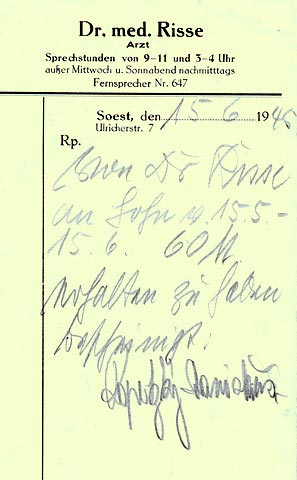 Dr. med. Risse
Arzt
Sprechstunden von 9–11 und 3–4 Uhr
außer Mittwoch u. Sonnabend nachmitttags
Fernsprecher Nr. 647
Soest, den 15 6 1945
Ulricherstr. 7
Rp.
Von Dr Risse
an Lohn v. 15.5.–
15.6. 60 M
erhalten zu haben
bescheinigt: